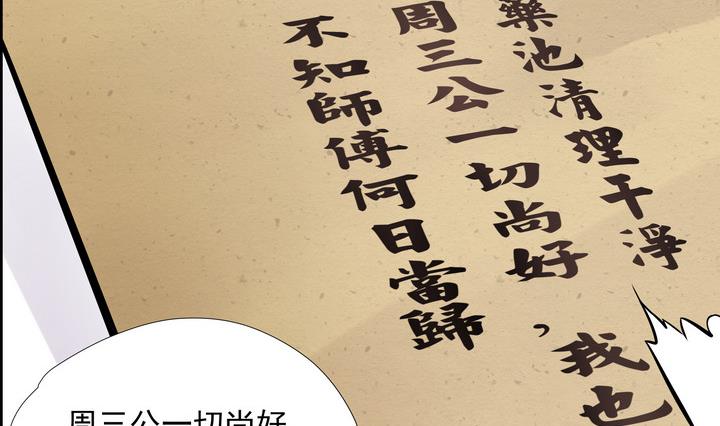 藥池清理干淨
周三公一切尚好，我也
不知師傅何日當歸
周三公一切尚好